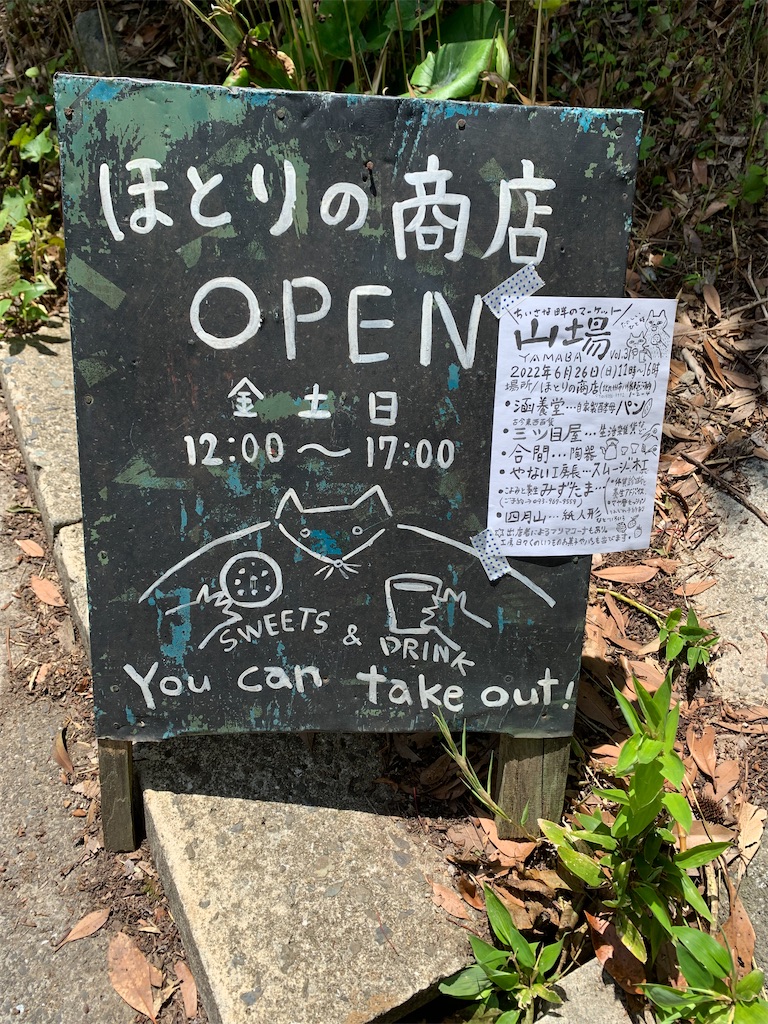 ほとりの商店
OPEN
金 土 日
12:00〜17:00
SWEETS & DRINK
You can take out!
ちいさな畔のマーケット
山場
YAMABA vol.3
2022年6月26日(日)11時〜16時
場所/ほとりの商店
・涵養堂…自家製酵母パン
古今東西百貨
・三ツ目屋…
・合間…陶器
・やない工房長…スムージー
みずたま…
・四月山…紙人形